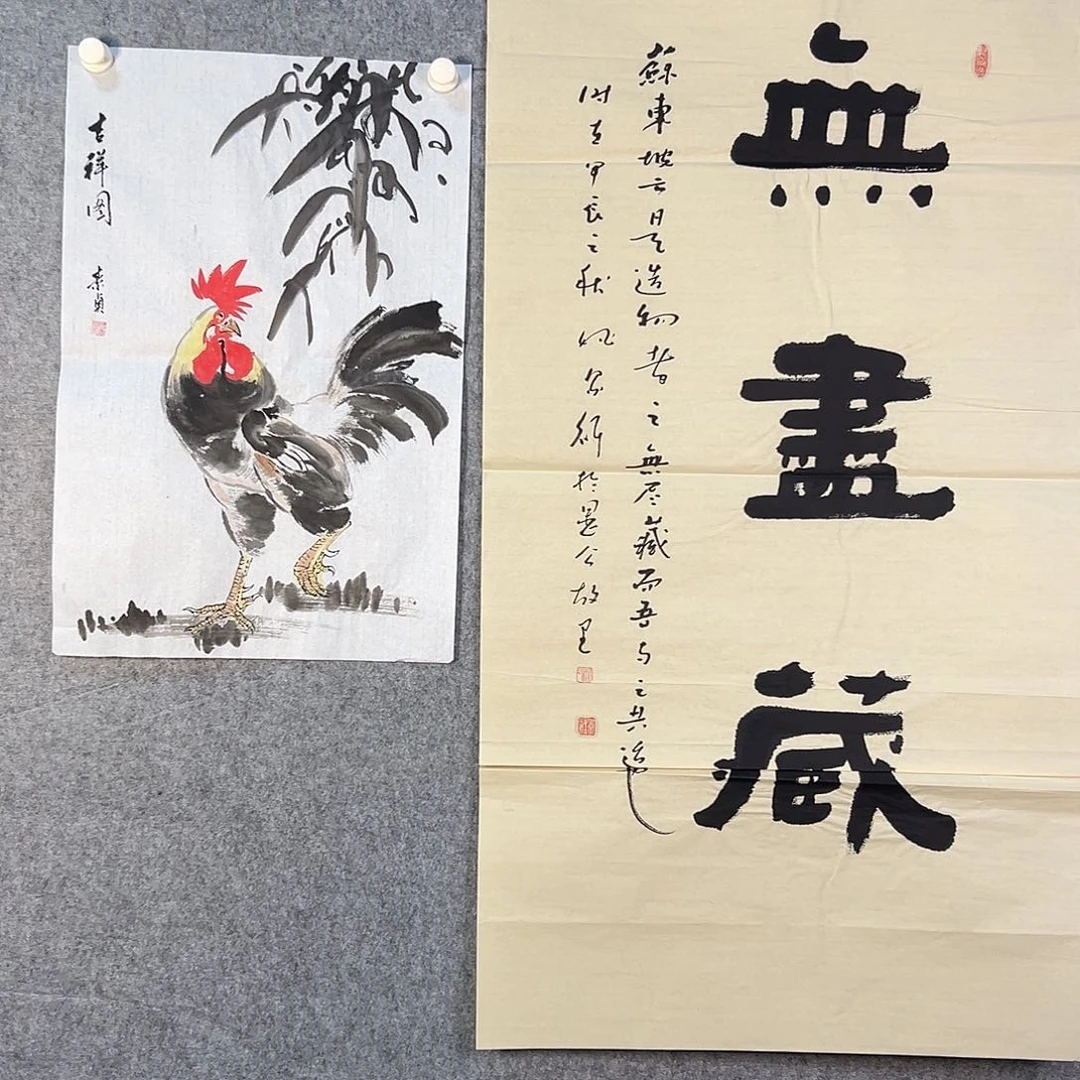 吉祥图
素貞
無盡藏
蘇東坡云是造物者之無尽藏而吾与之共適
时在甲辰之秋 於晁公故里